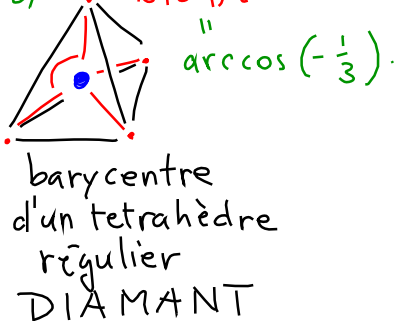 "
arccos (- 1/3).
barycentre
d'un tetrahèdre
régulier
DIAMANT